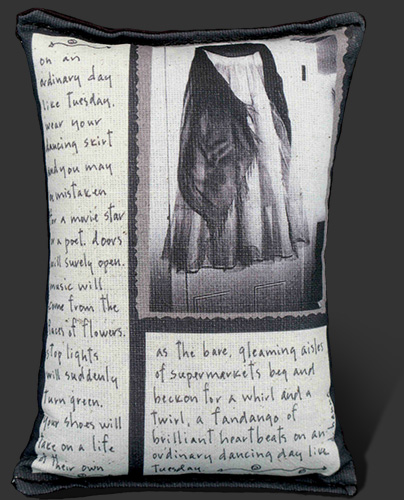 on an
ordinary day
like Tuesday.
wear your
dancing skirt
and you may
mistaken
for a movie star
or a poet. doors
will surely open.
music will
come from the
faces of flowers.
stop lights
will suddenly
turn green.
your shoes will
take on a life
of their own
as the bare, gleaming aisles
of supermarkets beg and
beckon for a whirl and a
twirl, a fandango of
brilliant heartbeats on an
ordinary dancing day like
Tuesday